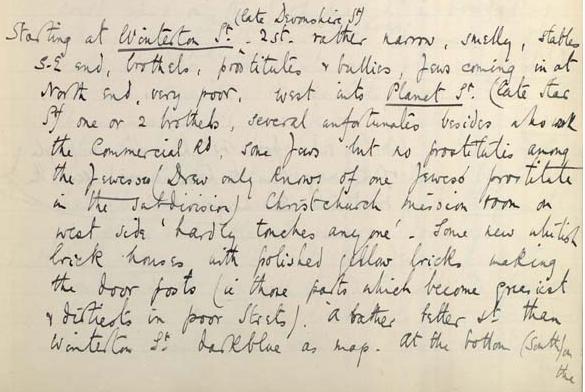 (late Devonshire St)
Starting at Winterton St. 2 st. rather narrow, smelly, stables
S-E end, brothels, prostitutes & bullies, Jews coming in at
North end, very poor, west into Planet St. (late Star
St) one or 2 brothels, several unfortunates besides who work
the Commercial Rd, some Jews but no prostitutes among
the Jewesses (Drew only knows of one Jewess prostitute
in the subdivision) Christchurch mission room on
west side 'hardly touches any one'. Some new whitish
brick houses with polished yellow bricks making
the door posts (ie those parts which become greasiest
& dirtiest in poor streets). A rather better st. than
Winterton St dark blue as map. At the bottom (South) on
the